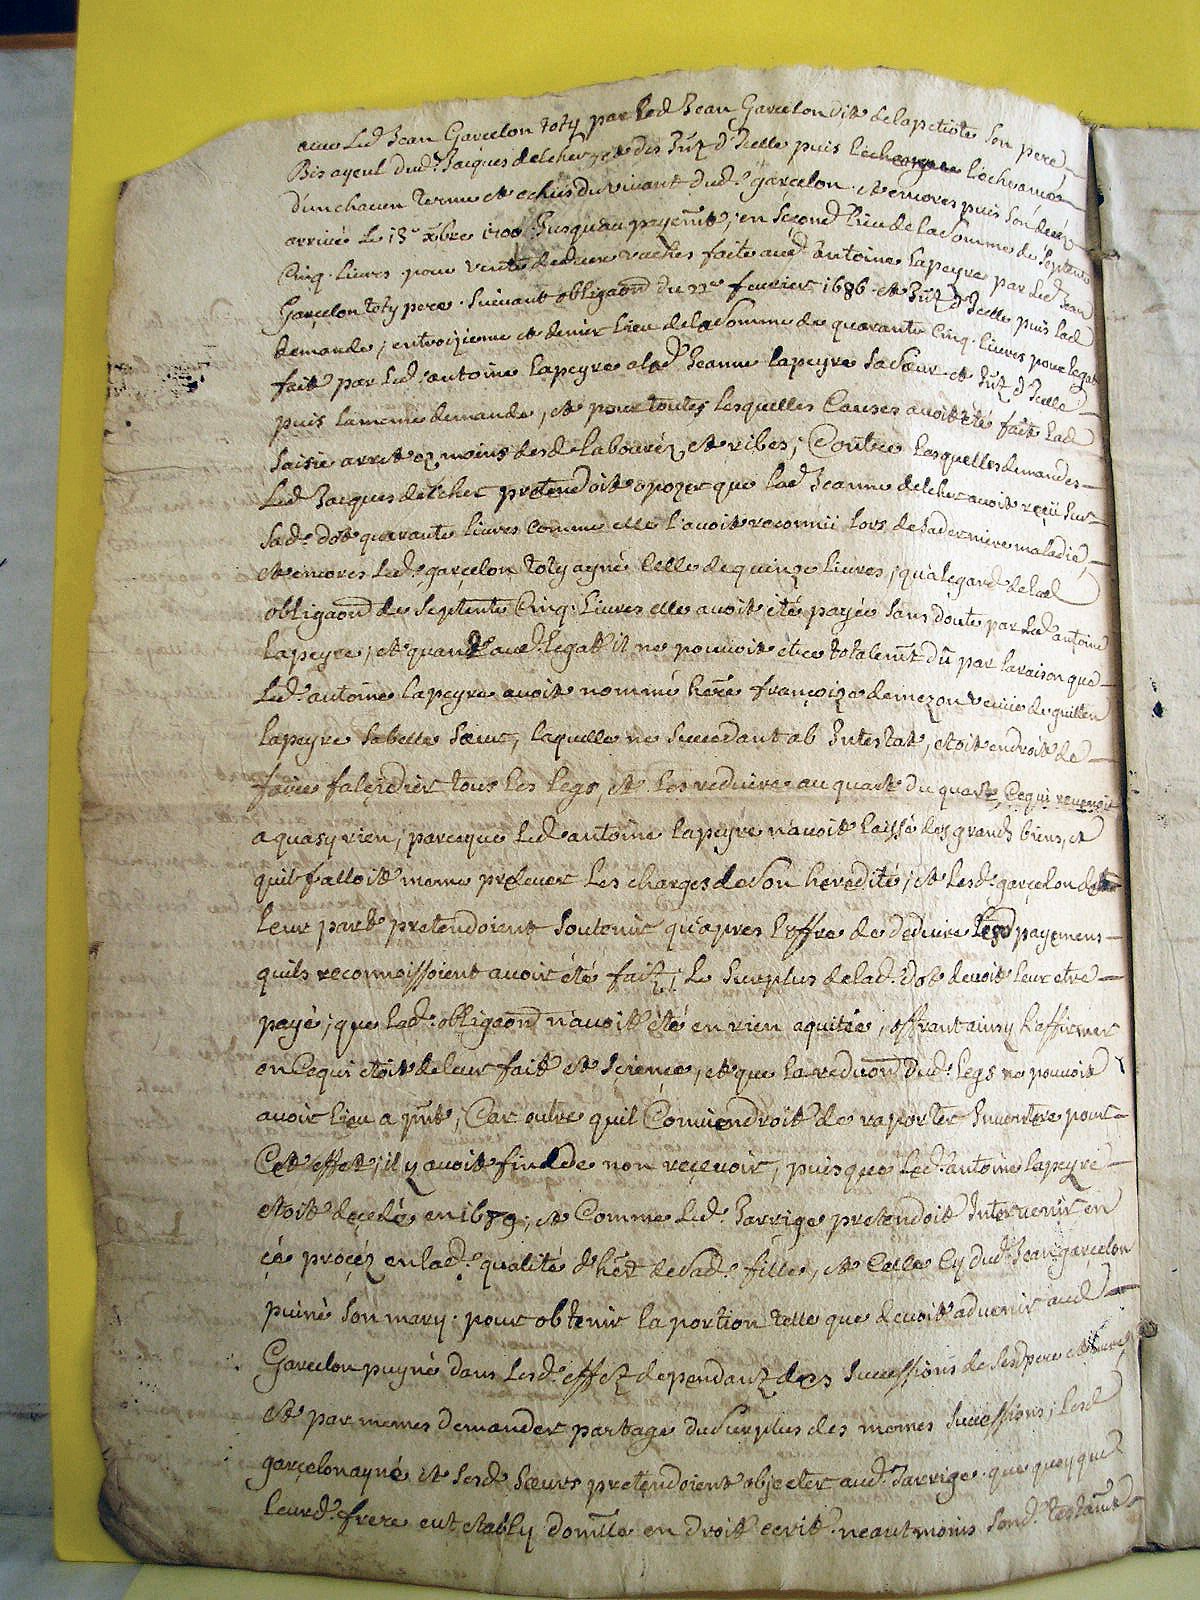 avec Led. Jean Garcelon toty par Led Jean Garcelon dit de lapetiote Son pere
Bisayeul dud. Jacques delcher et des Jntz d'Jcelle puis Lechance Lecheance
d'un chacun terme et echus du vivant dud. garcelon et encores puis Son deces
arrivé Le 13e xbre 1700 Jusqu'au payemt, en Second Lieu de la Somme de Septente
Cinq Livres pour vente de deux vaches faite aud antoine Lapeyre par Led Jean
Garcelon toty pere Suivant obligaon du 22e fevrier 1686 et Jntz d'Jcelle puis Lad
demande, en troizieme et denier Lieu de la Somme de quarante Cinq Livres pour legat
fait par Led. antoine Lapeyre a lad Jeanne Lapeyre Sa Sœur et Jntz d'Jcelle
puis la meme demande, et pour toutes Lesquelles Causes avoit été fait Lad
Saisie arret ez mains desd Labouréz et ribes, Contre Lesquelles demandes
Led Jacques delcher pretendoit opozer que lad Jeanne delcher avoit reçeü Sur
Sad. dot quarante livres comme elle l'avoit reconnü Lors de Sa derniere maladie,
et encores Led. garçelon toty ayné Celle de quinze Livres, qu'a l'egard de lad
obligaon de Septente Cinq Livres elle avoit été payée Sans doute par Led antoine
Lapeyre, et quand aud. legat il ne pouvoit etre totalemt dû par la raison que
Led. antoine Lapeyre avoit nommé here françoize demezon veuve de guillen
Lapeyre Sa belle Sœur, laquelle ne Succedant ab Jntestat, etoit en droit de
faire falcidier tous Les legs, et Les reduire au quart du quart, Ce qui revenoit
a quasy rien, parceque Led. antoine Lapeyre n'avoit Laissé des grands biens, et
quil falloit meme prelever Les charges de Son heredité, et Lesd. garçelon de
Leur part pretendoient Soutenir qu'apres Loffre de deduire Lesd payemens
quils reconnoissoient avoir été faitz, Le Surplus de lad. dot devoit leur etre
payé, que Lad. obligaon n'avoit été en rien aquitée, offrant ainsy L'affirmer
en Ce qui etoit de leur fait et Science, et que La reduon dud. Legs ne pouvoit
avoir lieu a pnt, Car outre quil Conviendroit de raporter Jnventre pour
Cet effet, il y avoit fin de non recevoir, puisque Led. antoine Lapeyre
etoit decedé en 1689; et Comme Led. Jarrige pretendoit Jntervenir en
çé proçéz en lad. qualité d'hert de Sad. fille, et Celle Cy dud. Jean garçelon
puiné Son mary pour obtenir la portion telle que devoit advenir aud
Garcelon puyné dans Lesd. effetz dependantz des Successions de Sesd pere et mere,
et par memes demander partage du Surplus des memes Successions, Led
garçelon ayné et Sesd Sœurs pretendoient objecter aud. Jarrige que quoy que
leurd. frere eut etably domlle en droit ecrit neantmoins Sond. testamt